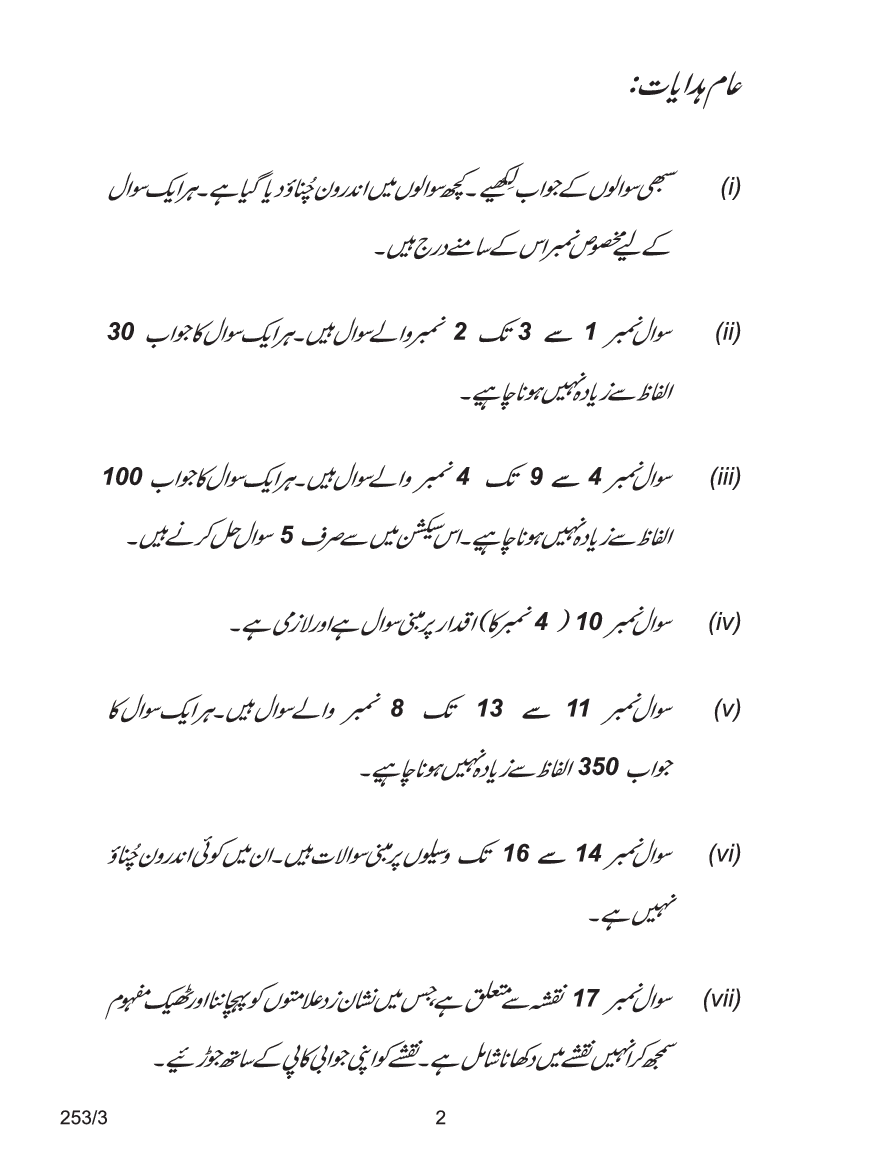 عام ہدایات:
(i) سبھی سوالوں کے جواب لِکھیے ۔ کچھ سوالوں میں اندرون چُناؤ دیا گیا ہے ۔ ہر ایک سوال
کے لیے مخصوص نمبر اس کے سامنے درج ہیں ۔
(ii) سوال نمبر 1 سے 3 تک 2 نمبر والے سوال ہیں ۔ ہر ایک سوال کا جواب 30
الفاظ سے زیادہ نہیں ہونا چاہیے ۔
(iii) سوال نمبر 4 سے 9 تک 4 نمبر والے سوال ہیں ۔ ہر ایک سوال کا جواب 100
الفاظ سے زیادہ نہیں ہونا چاہیے ۔ اس سیکشن میں سے صرف 5 سوال حل کرنے ہیں ۔
(iv) سوال نمبر 10 ( 4 نمبر کا) اقدار پر مبنی سوال ہے اور لازمی ہے ۔
(v) سوال نمبر 11 سے 13 تک 8 نمبر والے سوال ہیں ۔ ہر ایک سوال کا
جواب 350 الفاظ سے زیادہ نہیں ہونا چاہیے ۔
(vi) سوال نمبر 14 سے 16 تک وسیلوں پر مبنی سوالات ہیں ۔ ان میں کوئی اندرون چُناؤ
نہیں ہے ۔
(vii) سوال نمبر 17 نقشہ سے متعلق ہے، جس میں نشان زد علامتوں کو پہچاننا اور ٹھیک مفہوم
سمجھ کر انہیں نقشے میں دکھانا شامل ہے ۔ نقشے کو اپنی جوابی کاپی کے ساتھ جوڑئیے ۔
253/3 2